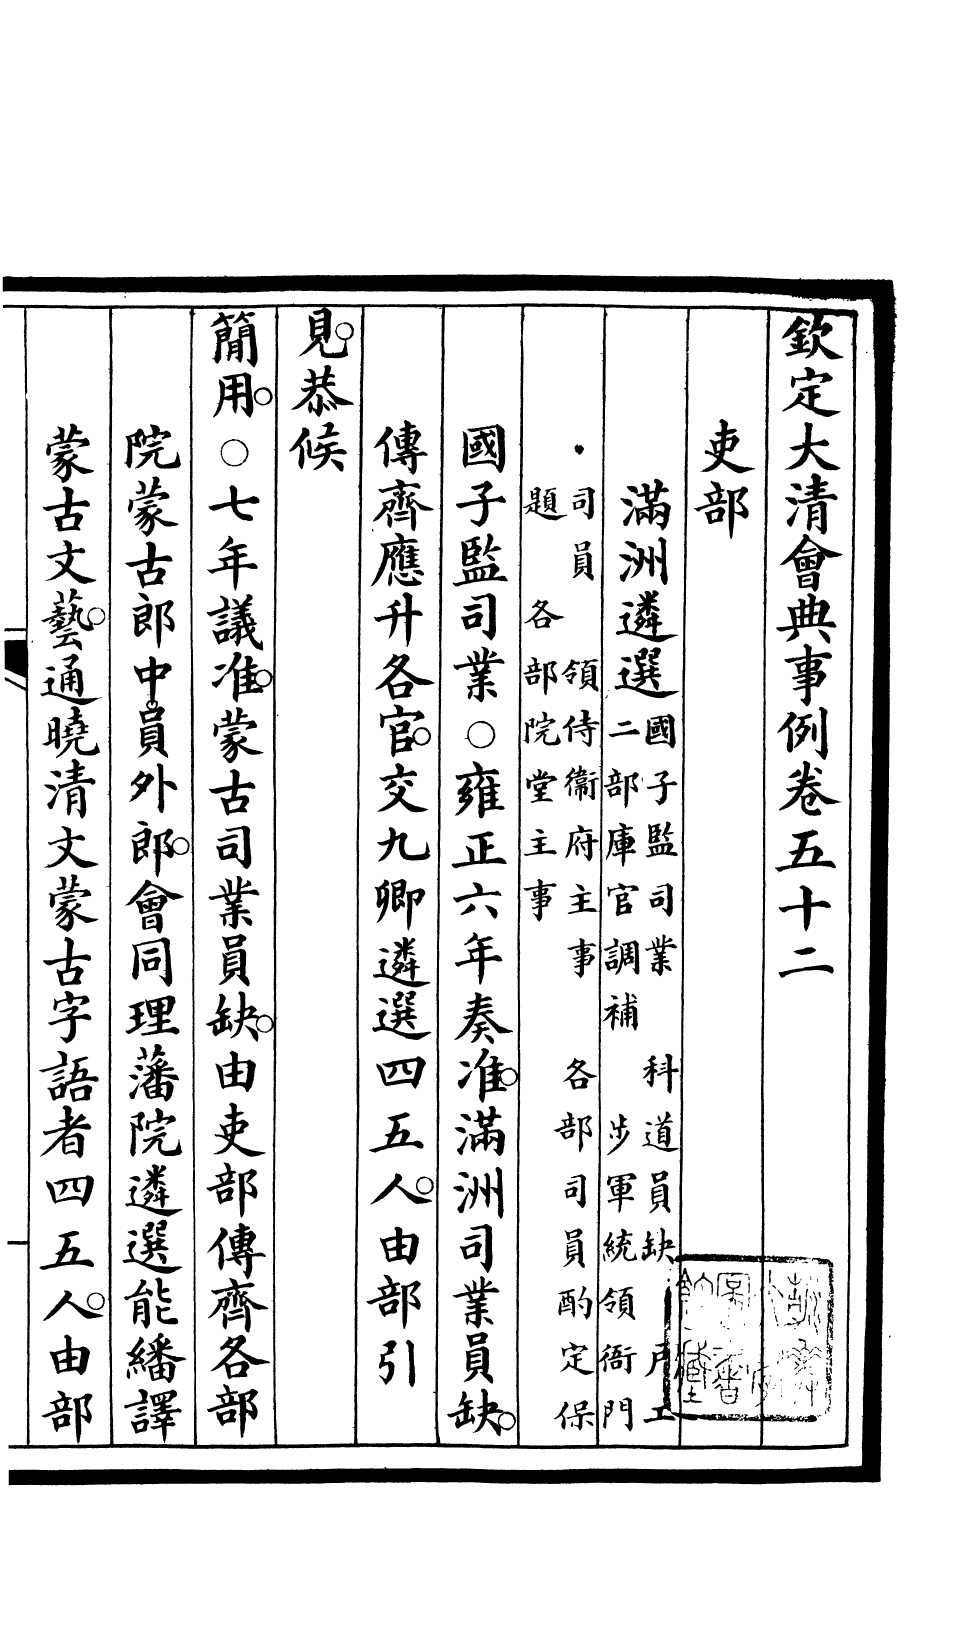 欽定大清會典事例卷五十二
吏部
滿洲遴選
國子監司業 科道員缺 戶工
二部庫官調補 步軍統領衙門
司員 領侍衞府主事 各部司員酌定保
題 各部院堂主事
國子監司業○雍正六年奏准。滿洲司業員缺。
傳齊應升各官。交九卿遴選四五人。由部引
見。恭候
簡用。○七年議准。蒙古司業員缺。由吏部傳齊各部
院蒙古郎中。員外郎。會同理藩院遴選能繙譯
蒙古文藝。通曉清文蒙古字語者四五人。由部